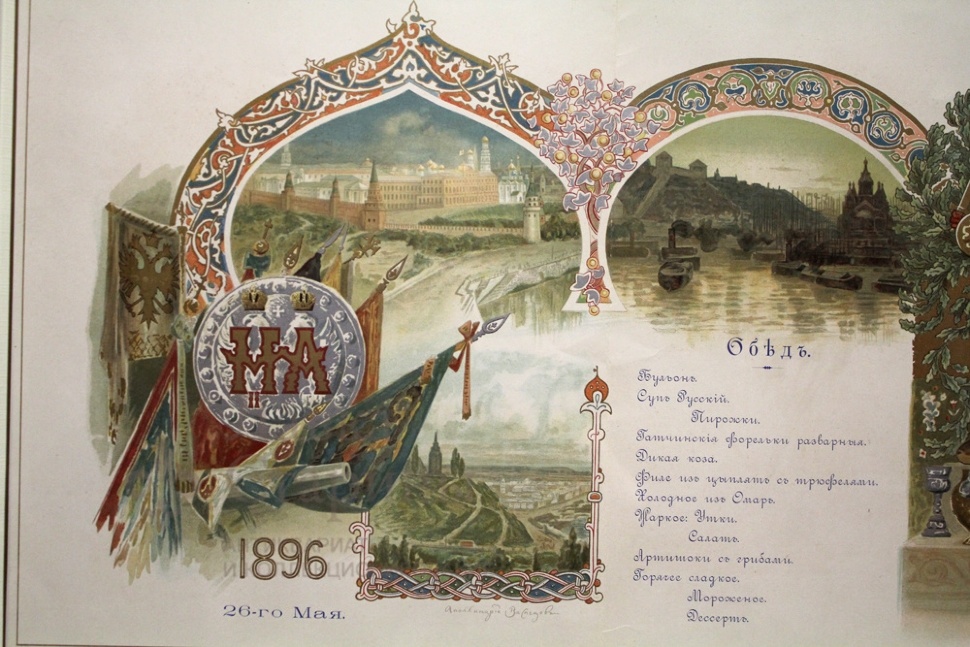 НА
II
1896
26-го Мая.
Обѣдъ.
Бульонъ.
Супъ Русскій.
Пирожки.
Гатчинскія форельки разварныя.
Дикая коза.
Филе изъ цыплятъ съ трюфелями.
Холодное изъ Омаръ.
Жаркое: Утки.
Салатъ.
Артишоки съ грибами.
Горячее сладкое.
Мороженое.
Дессертъ.